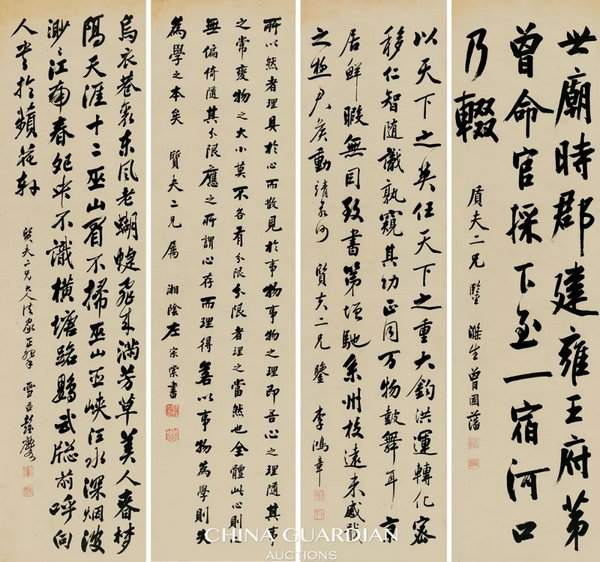 世廟時郡建雍王府第
曾命官採下至一宿河口
乃輟
質夫二兄鑒 滌生曾國藩
以天下之英任天下之重大鈞洪運轉化密
移仁智隨識孰窺其功正同万物鼓舞耳京
居鮮暇無因致書第垣馳系州校遠来感戢
之極 動靖 質夫二兄鑒 李鴻章
所以然者理具於心而散見於事物事物之理即吾心之理隨其事
之常變物之大小莫不各有分限分限者理之當然也全體此心則自
無偏倚隨其分限應之所謂心存而理得若以事物為學則失
為學之本矣 質夫二兄屬 湘陰左宗棠書
烏衣巷裏东风老蝴蝶飛来滿芳草美人春梦
隔天涯十二巫山眉不掃巫山巫峽江水深烟波
渺渺江南春 不識橫塘路鸚武牎前呼向
人 於蘋花軒
質夫二兄大人法家正 雪琴彭玉麐
CHINA GUARDIAN
AUCTIONS